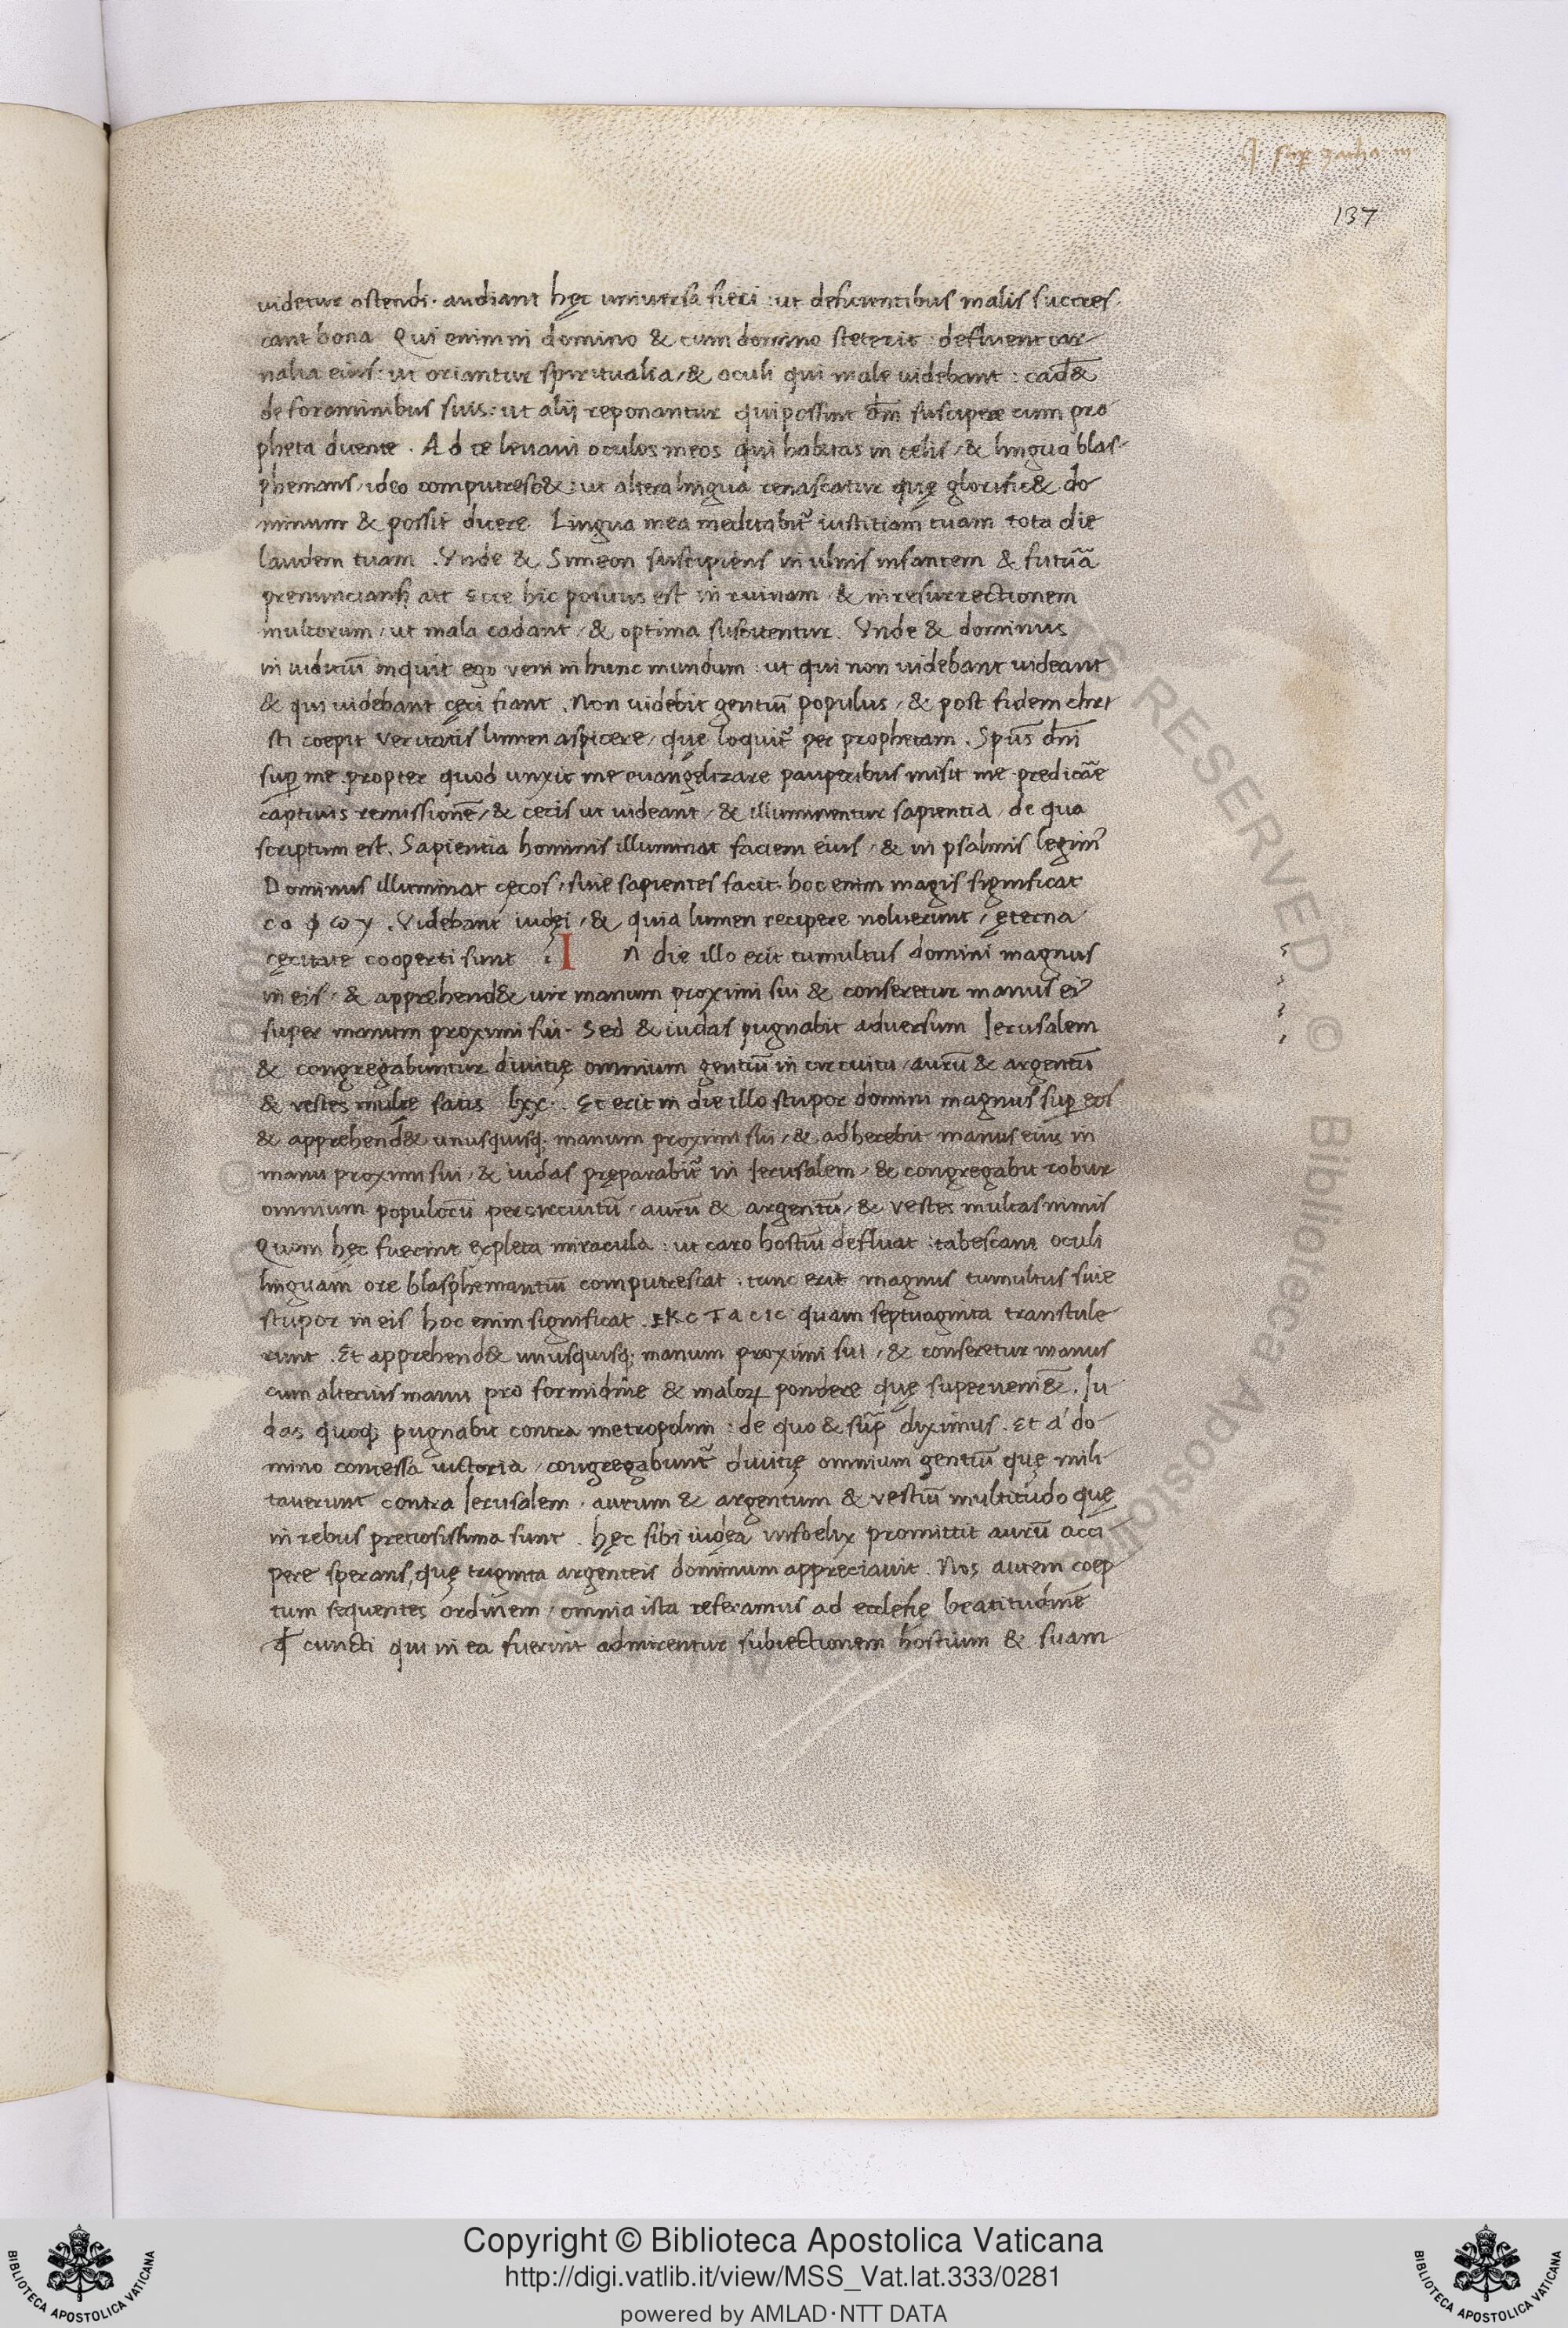 137
videtur ostendi. audiant hęc universa fieri : ut deficientibus malis succres
cant bona Qui enim in domino & cum domino steterit : defluent car
nalia eius : ut oriantur spiritualia / & oculi qui male videbant : cad&
de foraminibus suis : ut alij reponantur qui possint dn̄m suscipere cum pro
pheta dicente . Ad te levavi oculos meos qui habitas in celis / & lingua blas
phemans / ideo computresc& : ut altera lingua renascatur quę glorific& do
minum & possit dicere Lingua mea meditabit᷑ iustitiam tuam tota die
laudem tuam . Unde & Simeon suscipiens in ulnis infantem & futūa
prenuncians ait Ecce hic positus est in ruinam & in resurrectionem
multorum / ut mala cadant / & optima suscitentur. Unde & dominus
in iudiciū inquit ego veni in hunc mundum : ut qui non videbant videant
& qui videbant cęci fiant . Non videbit gentiū populus / & post fidem chri
sti coepit veritatis lumen aspicere / que loquit᷑ per prophetam . Spūs dn̄i
sup̱ me propter quod unxit me evangelizare pauperibus misit me predicāe
captivis remissionē / & cecis ut videant / & illuminentur sapientia / de qua
scriptum est. Sapientia hominis illuminat faciem eius / & in psalmis legim᷒
Dominus illuminat cęcos / sive sapientes facit. hoc enim magis significat
co φ ω γ . Videbant iudęi / & quia lumen recipere noluerunt / ęterna
cęcitate cooperti sunt . In die illo erit tumultus domini magnus
in eis / & apprehend& vir manum proximi sui & conseretur manus ei᷒
super manum proximi sui. Sed & iudas pugnabit adversum Ierusalem
& congregabuntur divitię omnium gentiū in circuitu / aurū & argentū
& vestes multę satis lxx . Et erit in die illo stupor domini magnus sup̱ eos
& apprehend& unusquisq; manum proximi sui / & adherebit manus eius in
manu proximi sui / & iudas pręparabit᷑ in Ierusalem / & congregabit robur
omnium populorū per circuitū / aurū & argentū / & vestes multas nimis
Quom hęc fuerint expleta miracula : ut caro hostiū defluat : tabescant oculi
linguam ore blasphemantiū computrescat . tunc erit magnus tumultus sive
stupor in eis hoc enim significat . ΕΚCΤΑCΙC quam septuaginta transtule
runt . Et apprehend& unusquisq; manum proximi sui / & conseretur manus
cum alterius manu pro formidine & maloꝝ pondere quę superveni&. Iu
das quoq; pugnabit contra metropolim : de quo & sup̄ diximus . Et a' do
mino concessa victoria / congregabunt᷑ divitię omnium gentiū quę mili
taverunt contra Ierusalem . aurum & argentum & vestiū multitudo quę
in rebus preciosissima sunt . hęc sibi iudęa infoelix promittit aurū acci
pere sperans, quę triginta argenteis dominum appreciavit . Nos autem coep
tum sequentes ordinem / omnia ista referamus ad ecclesię beatitudinē
ꝙ cuncti qui in ea fuerint admirentur subiectionem hostium & suam
Copyright © Biblioteca Apostolica Vaticana
http://digi.vatlib.it/view/MSS_Vat.lat.333/0281
powered by AMLAD·NTT DATA
BIBLIOTECA APOSTOLICA VATICANA
BIBLIOTECA APOSTOLICA VATICANA